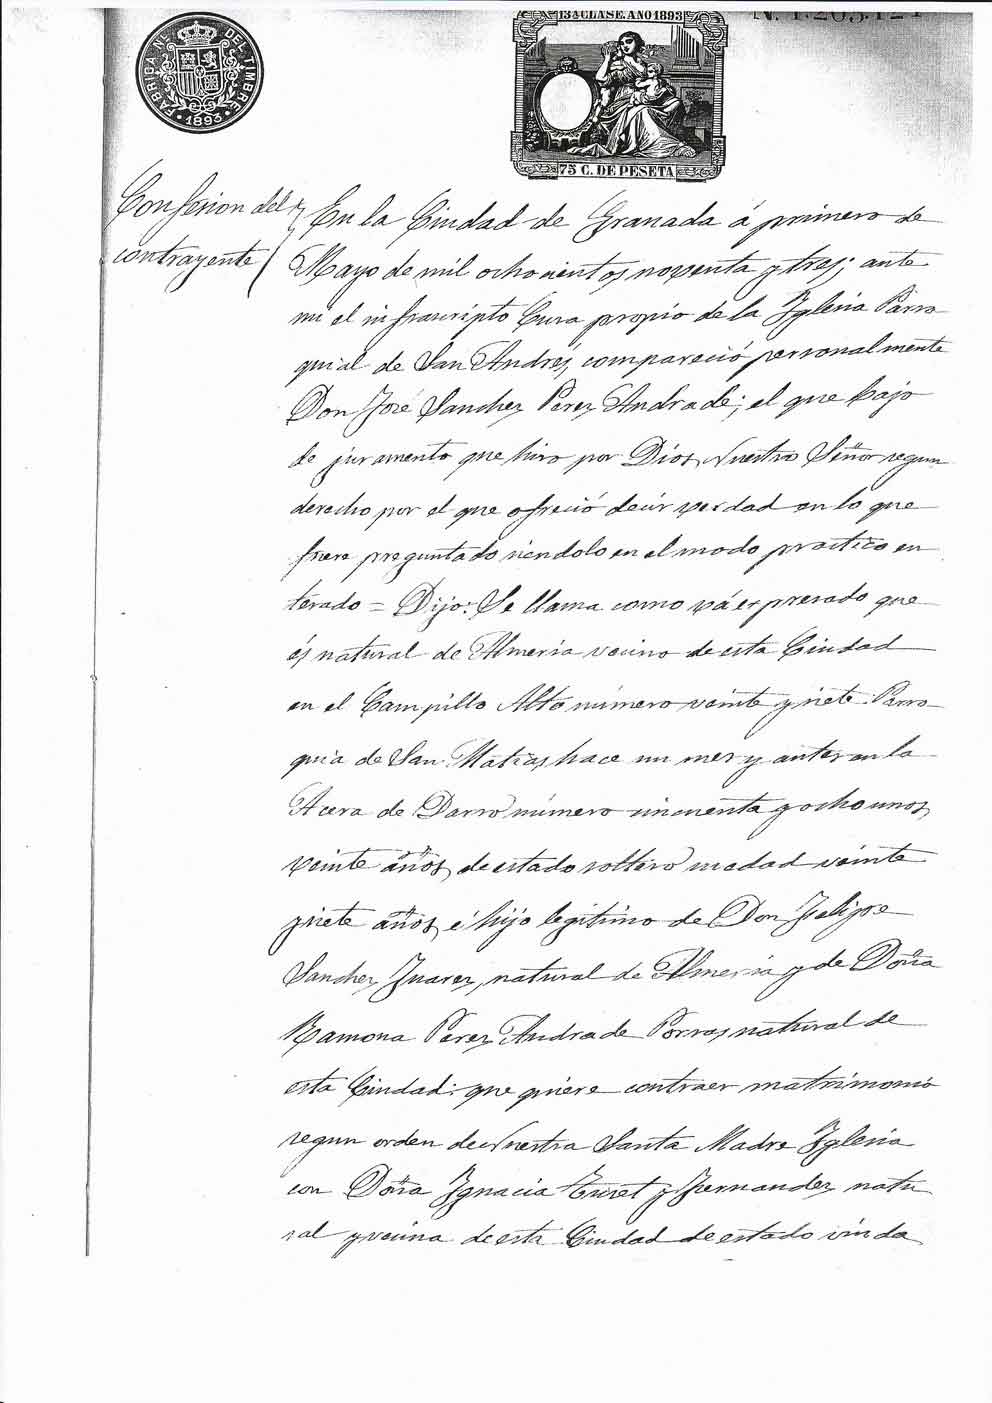 FABRICA Nl. DEL TIMBRE
1893
13A CLASE. AÑO 1893
75 C. DE PESETA
N. 1.205.121
Confesion del
contrayente
En la Ciudad de Granada á primero de
Mayo de mil ochocientos noventa y tres; ante
mi el infrascripto Cura propio de la Iglesia Parro
quial de San Andrés, compareció personalmente
Don José Sanchez Perez Andrade; el que bajo
de juramento que hizo por Dios Nuestro Señor segun
derecho por el que ofreció decir verdad en lo que
fuere preguntado siendolo en el modo practico en
terado = Dijo: Se llama como vá expresado que
es natural de Almeria vecino de esta Ciudad
en el Campillo Alto número veinte y siete Parro
quia de San Matias, hace un mes y antes en la
Acera de Darro número cincuenta y ocho unos
veinte años, de estado soltero su edad veinte
y siete años, é hijo legitimo de Don Felipe
Sanchez Juarez, natural de Almeria y de Doña
Ramona Perez Andrade Porras natural de
esta Ciudad: que quiere contraer matrimonio
segun orden de Nuestra Santa Madre Iglesia
con Doña Ignacia y Fernandez natu
ral y vecina de esta Ciudad de estado viuda